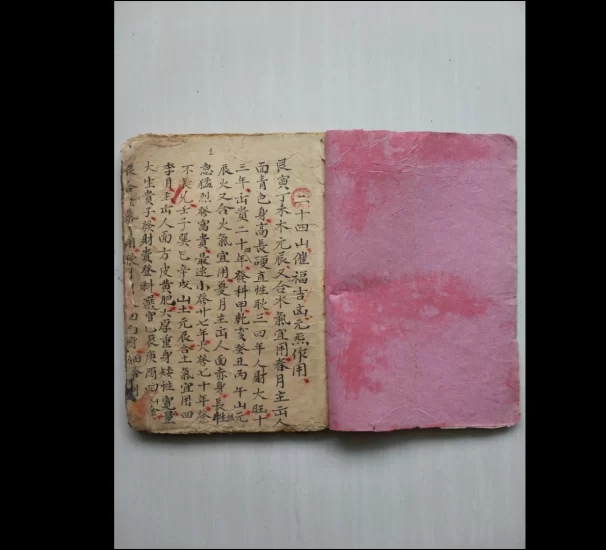 二十四山催福吉凶元炁作用
艮寅丁未木元辰又合木氣宜用春月主出人
面青色身高長硬直性耿三四年人財大旺十
三年出貴二十年發科甲乾亥癸丑丙午山元
辰火又合火氣宜用夏月主出人面赤身長性
急猛烈發富貴最速小發廿七年大發七十年發
不長久壬子巽巳辛戌山土元辰合土氣宜用四
季月主出人面方皮黃肥大厚重身矮性寬量
大生貴子發財貴登科選官乙辰庚酉四
辰合 氣用秋月